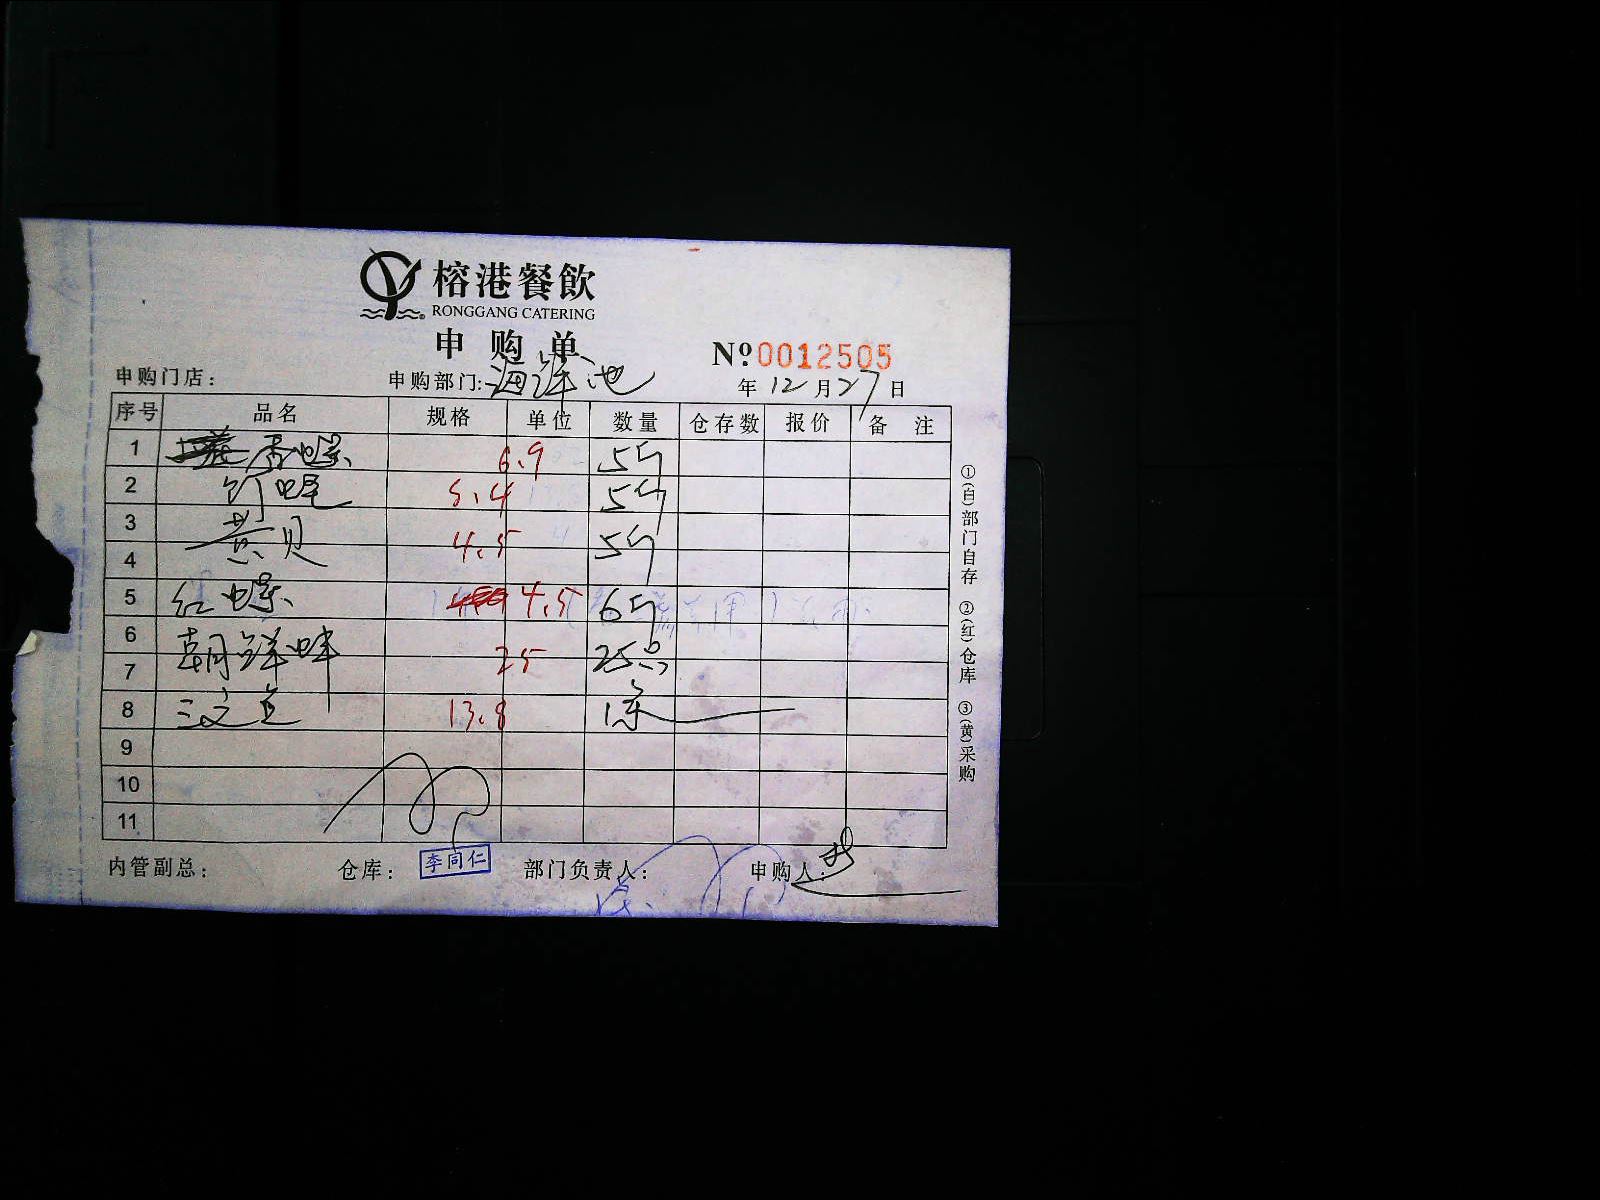 榕港餐飲
RONGGANG CATERING
申购单
№:0012505
申购门店: 申购部门: 海鲜池 年 12 月 27 日
序号 品名 规格 单位 数量 仓存数 报价 备 注
1 香螺 6.9 5斤
2 5.4 5斤
3 黄贝 4.5 5斤
4
5 红螺 4.5 6斤
6 朝鲜蚌 25 25只
7
8 三文鱼 13.8 1条
9
10
11
①(白)部门自存 ②(红)仓库 ③(黄)采购
内管副总: 仓库: 李同仁 部门负责人: 申购人: